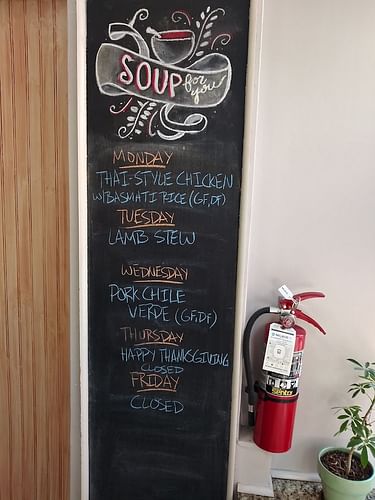 SOUP for you
MONDAY
THAI-STYLE CHICKEN
W/BASMATI RICE (GF,DF)
TUESDAY
LAMB STEW
WEDNESDAY
PORK CHILE
VERDE (GF,DF)
THURSDAY
HAPPY THANKSGIVING
CLOSED
FRIDAY
CLOSED
Sentry